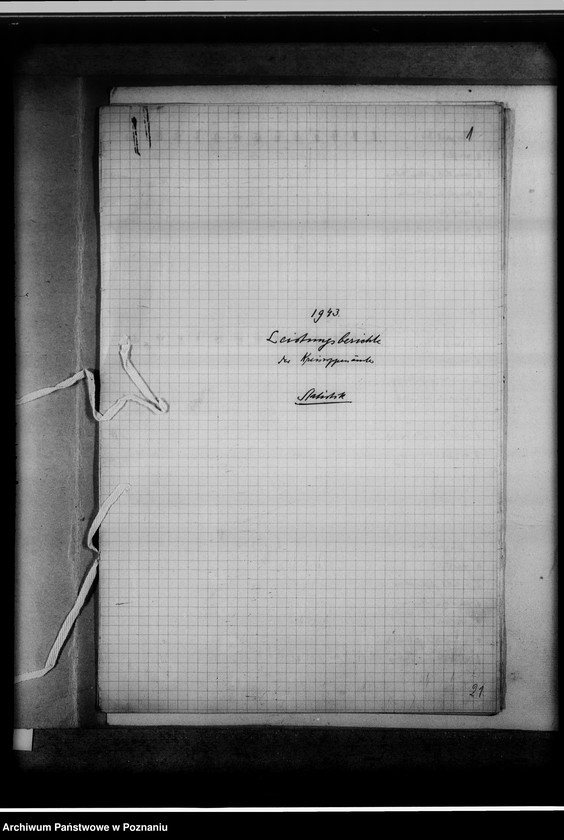 1
1943.
Leistungsberichte
der
Statistik
21
Archiwum Państwowe w Poznaniu